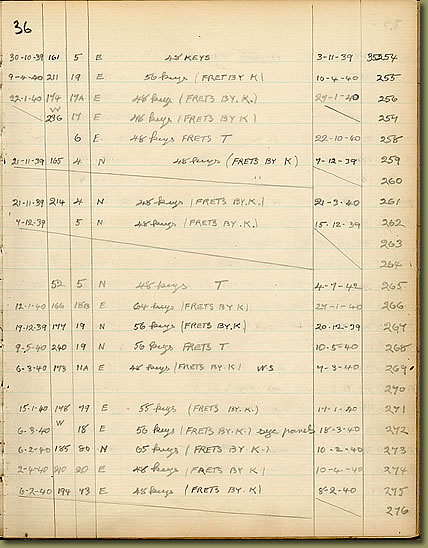 36
30-10-39 161 5 E 48 KEYS 3-11-39 35254
9-4-40 211 19 E 56 keys (FRETS BY K) 10-4-40 255
22-1-40 174 17A E 48 keys (FRETS BY. K.) 27-1-40 256
W 236 17 E 48 keys (FRETS BY K) 257
6 E 48 keys FRETS T 22-10-40 258
21-11-39 165 4 N 48 keys (FRETS BY K) 7-12-39 259
260
21-11-39 214 4 N 48 keys (FRETS BY K.) 21-3-40 261
7-12-39 5 N 48 keys (FRETS BY. K.) 15-12-39 262
263
264
52 5 N 48 keys T 4-7-42 265
12-1-40 166 18B E 64 keys (FRETS BY K) 27-1-40 266
19-12-39 177 19 N 56 keys (FRETS BY.K) 20-12-39 267
9-5-40 240 19 N 56 keys FRETS T 10-5-40 268
6-3-40 173 11A E 48 keys (FRETS BY.K) W.S 7-3-40 269
270
15-1-40 178 79 E 55 keys (FRETS BY.K.) 17-1-40 271
6-3-40 W 18 E 56 keys (FRETS BY.K.) Dye panels 18-3-40 272
6-2-40 185 80 N 65 keys (FRETS BY K.) 10-2-40 273
2-4-40 210 20 E 48 keys (FRETS BY K) 10-4-40 274
6-2-40 194 73 E 48 keys (FRETS BY K) 8-2-40 275
276